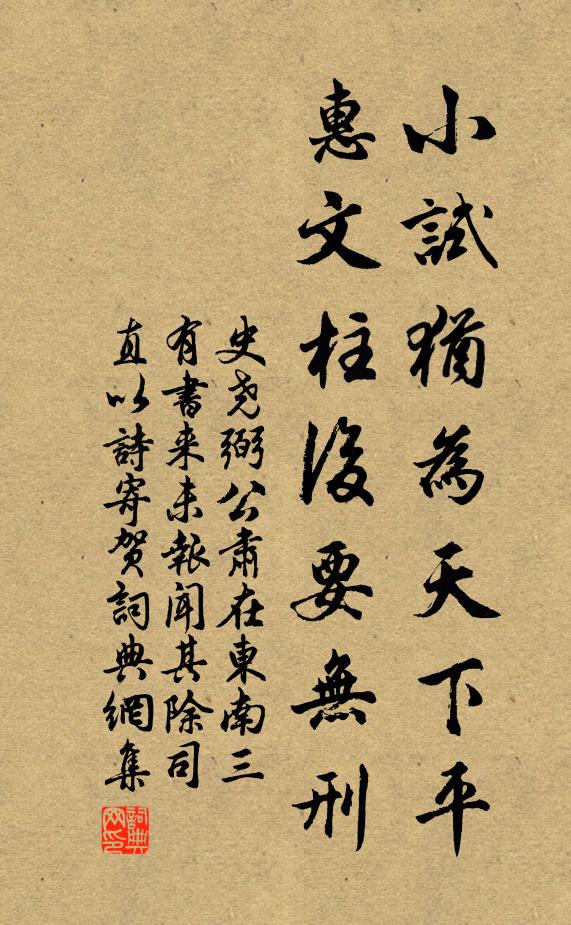 小試猶為天下平
惠文柱後要無刑
史尧弼公肅在東南三
有書来未報闻其除司
直以詩寄贺詞典網集
詞典
网印